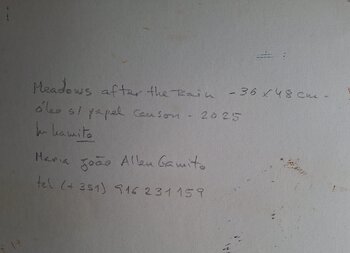 Meadows after the Rain - 36 x 48 cm -
óleo s/ papel canson - 2025
Gamito
Maria João Allen Gamito
tel (+351) 916 231 159